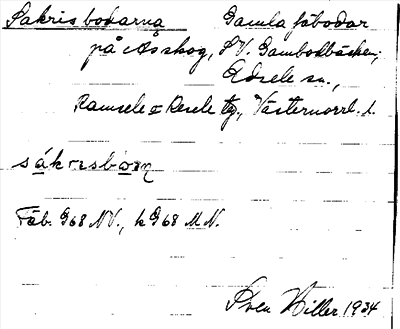 Sakrisbodarna Gamla fäbodar
på Åsskog, SV. Gambodbäcken;
Edsele sn.,
Ramsele o Resele tg., Västernorrl. l.
sákrɪsbo̲ɷɳ
Fäb. G68 NV., k G68 M N.
Sven Hiller 1934